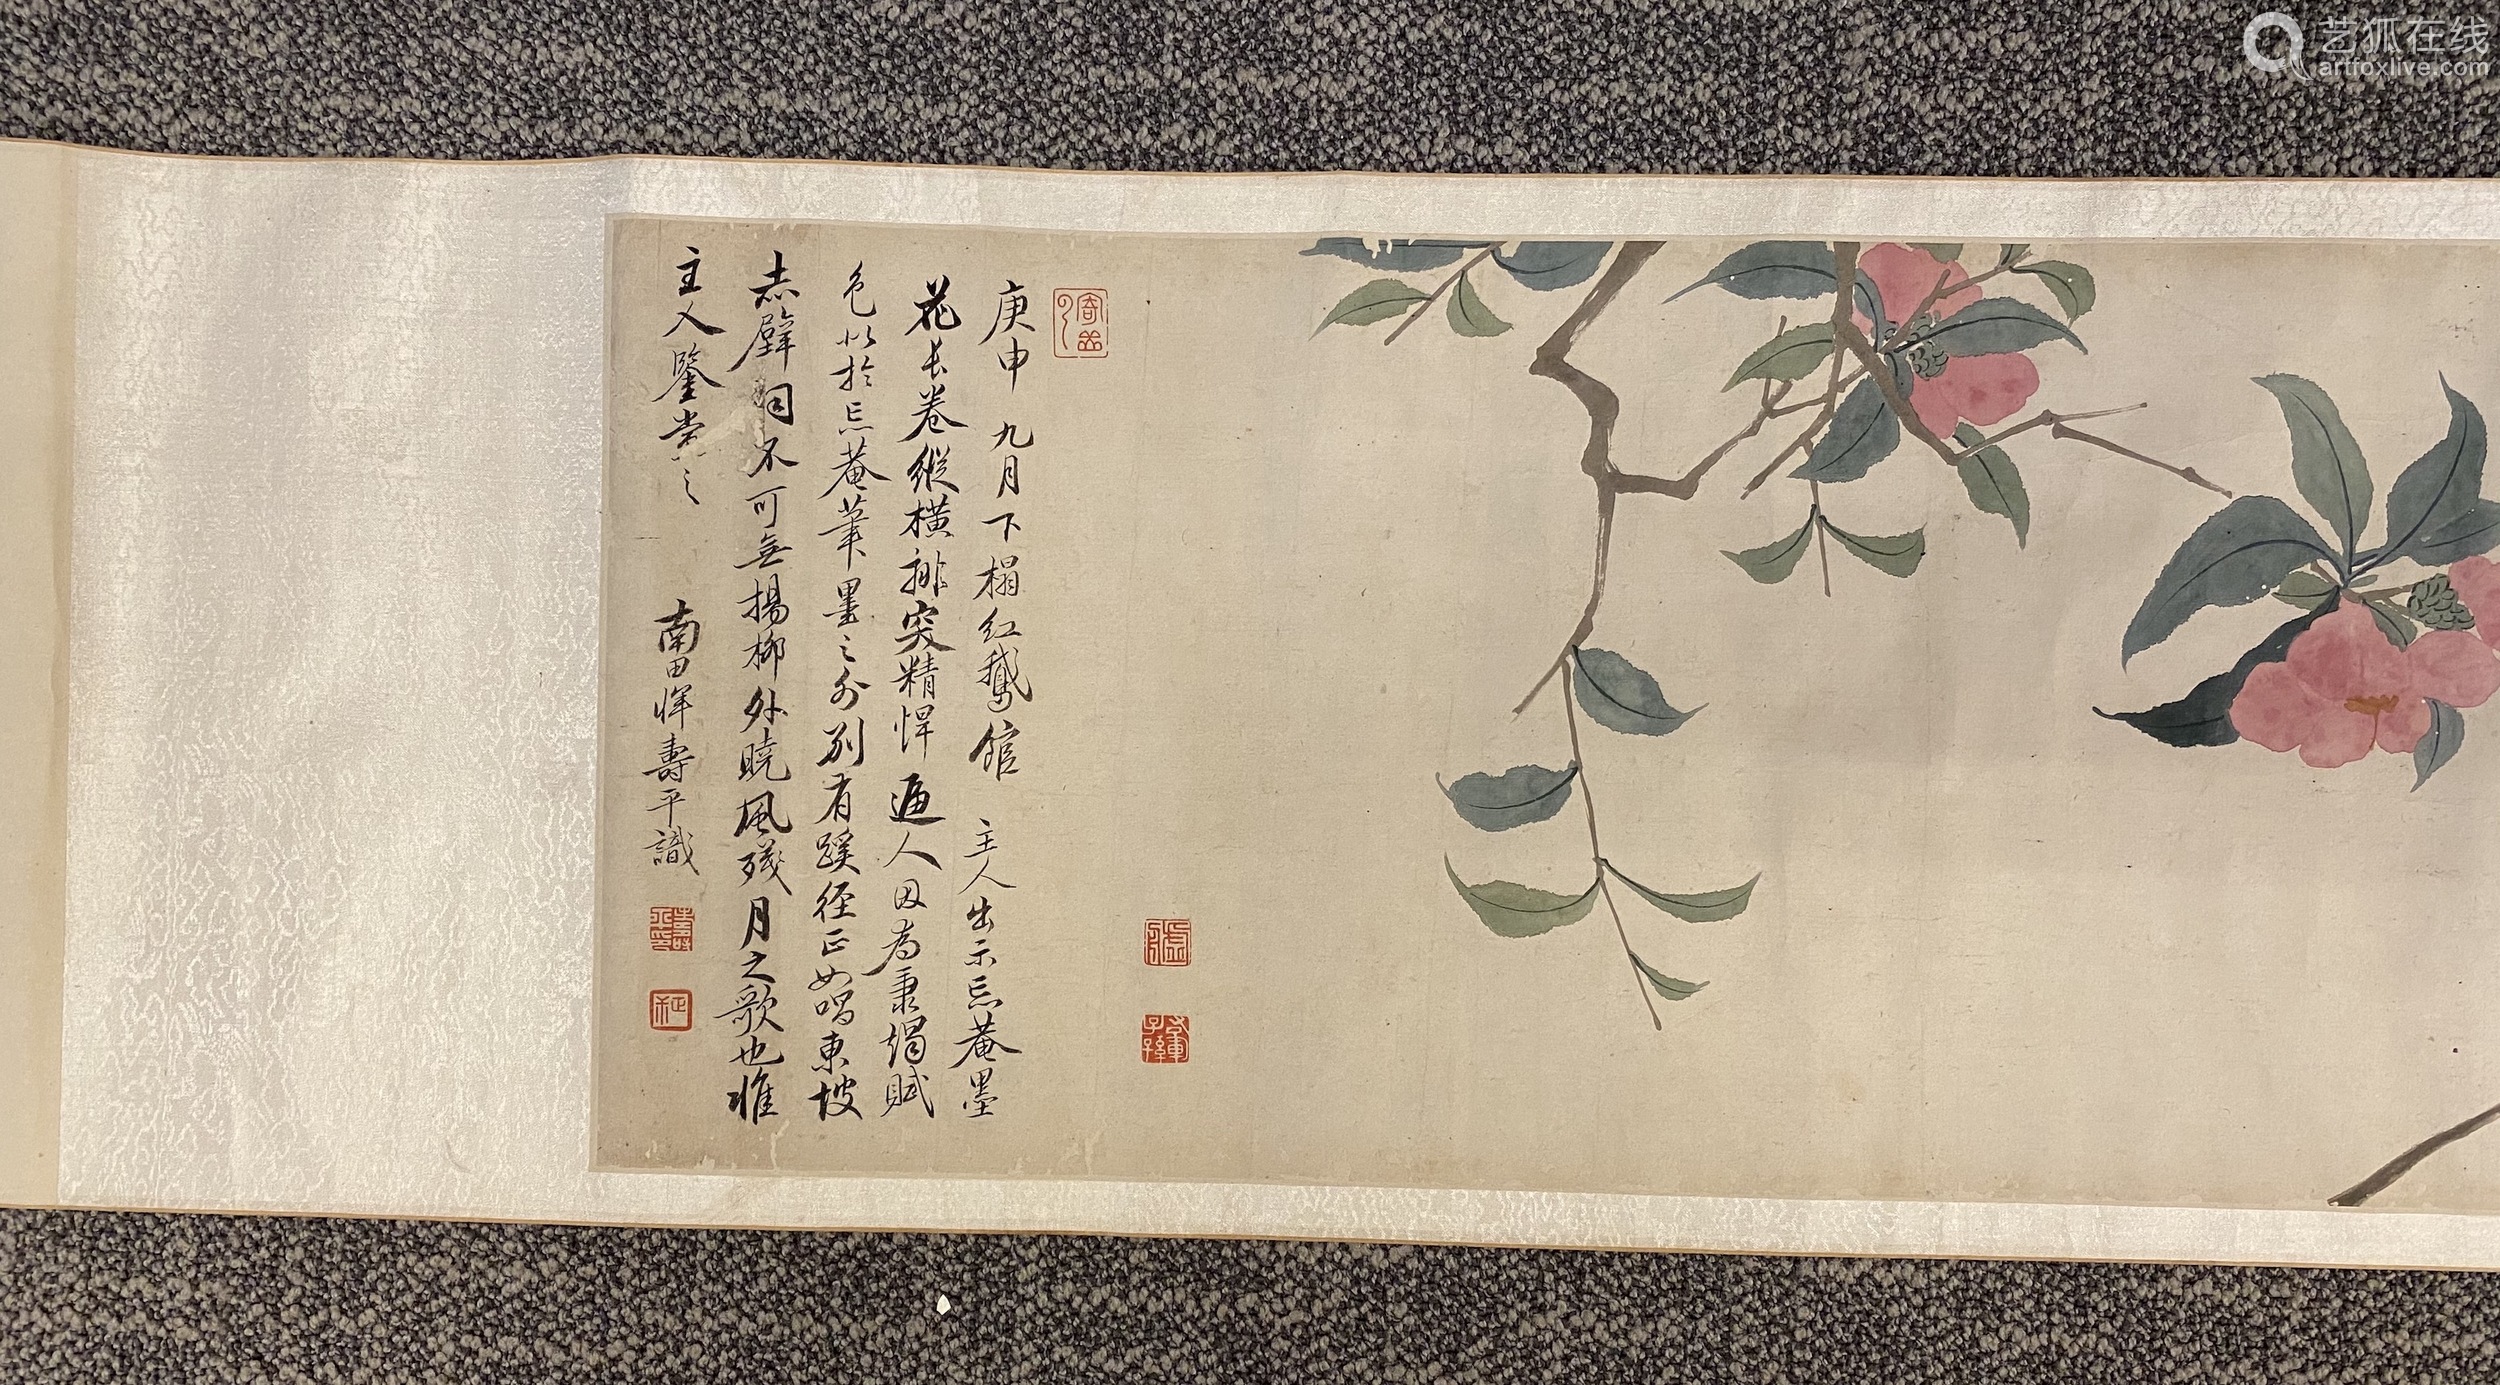 庚申九月下榻紅鵝館主人出示忘菴墨
花長卷縱橫排突精悍逼人因為秉燭賦
色以於忘菴筆墨之外別有蹊徑正如唱東坡
赤壁詞不可無楊柳外曉風殘月之歌也惟
主人鑒賞之
南田惲壽平識
艺狐在线
artfoxlive.com